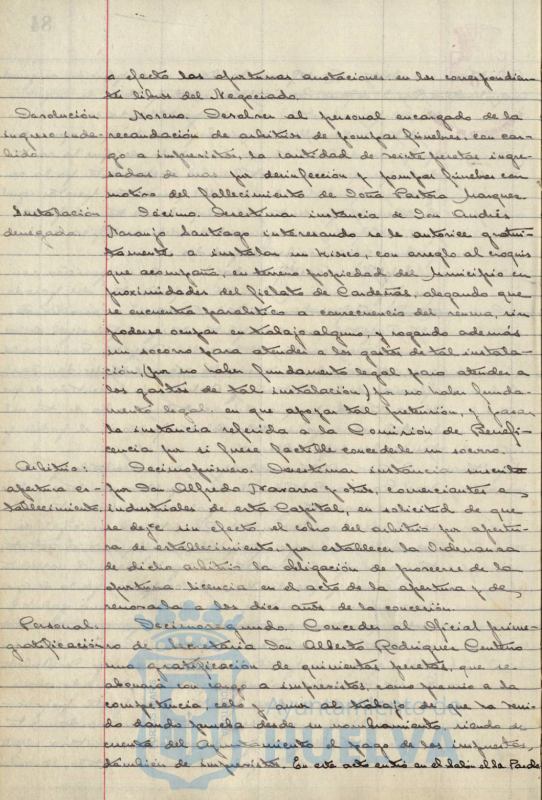 a efecto las oportunas anotaciones en los correspondien-
tes libros del Negociado.
Devolución
ingreso inde-
bido.
Noveno. Devolver al personal encargado de la
recaudación de arbitrios de pompas fúnebres, con car-
go a imprevistos, la cantidad de veinte pesetas ingre-
sadas de más por desinfección y pompas fúnebres con
motivo del fallecimiento de Doña Pastora Marquez
Instalación
denegada.
Décimo. Desestimar instancia de Don Andrés
Naranjo Santiago interesando se le autorice gratui-
tamente a instalar un kiosco, con arreglo al croquis
que acompaña, en terreno propiedad del Municipio en
proximidades del fielato de Cardeñas, alegando que
se encuentra paralítico a consecuencia del reuma, sin
poderse ocupar en trabajo alguno, y rogando además
un socorro para atender a los gastos de tal instala-
ción, (por no haber fundamento legal para atender a
los gastos de tal instalación) por no haber funda-
mento legal en que apoyar tal pretensión, y pasar
la instancia referida a la Comisión de Benefi-
cencia por si fuese factible concederle un socorro.
Arbitrio:
apertura es-
tablecimiento.
Decimoprimero. Desestimar instancia suscrita
por Don Alfredo Navarro y otros, comerciantes e
industriales de esta Capital, en solicitud de que
se deje sin efecto el cobro del arbitrio por apertu-
ra de establecimiento, por establecer la Ordenanza
de dicho arbitrio la obligación de proveerse de la
oportuna licencia en el acto de la apertura y de
renovarla a los diez años de la concesión.
Personal:
gratificación
Decimosegundo. Conceder al Oficial prime-
ro de Secretaría Don Alberto Rodriguez Centeno
una gratificación de quinientas pesetas, que se
abonará con cargo a imprevistos, como premio a la
competencia, celo y amor al trabajo de que ha veni-
do dando prueba desde su nombramiento, siendo de
cuenta del Ayuntamiento el pago de los impuestos,
también de imprevistos. En este acto entró en el Salón el Sr. Pardo
Ayuntamiento de
HUELVA